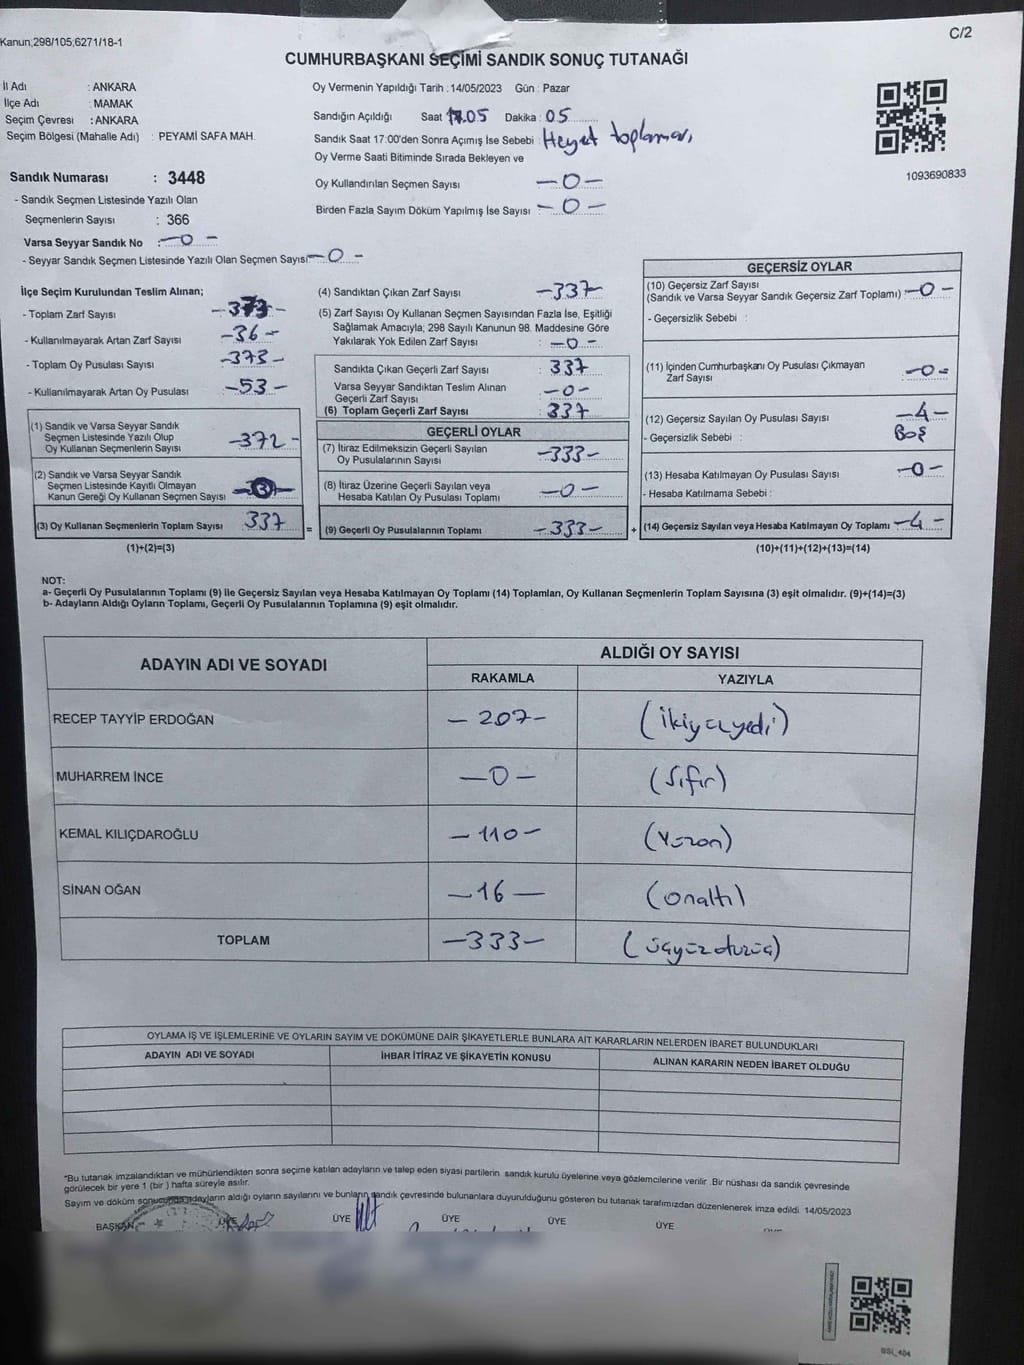 Kanun;298/105;6271/18-1
C/2
CUMHURBAŞKANI SEÇİMİ SANDIK SONUÇ TUTANAĞI
İl Adı : ANKARA
İlçe Adı : MAMAK
Seçim Çevresi : ANKARA
Seçim Bölgesi (Mahalle Adı) : PEYAMİ SAFA MAH.
Sandık Numarası : 3448
- Sandık Seçmen Listesinde Yazılı Olan
Seçmenlerin Sayısı : 366
Varsa Seyyar Sandık No : -0-
- Seyyar Sandık Seçmen Listesinde Yazılı Olan Seçmen Sayısı -0-
Oy Vermenin Yapıldığı Tarih : 14/05/2023 Gün : Pazar
Sandığın Açıldığı Saat 17.05 Dakika : 05
Sandık Saat 17:00'den Sonra Açımış İse Sebebi : Heyet toplaması
Oy Verme Saati Bitiminde Sırada Bekleyen ve
Oy Kullandırılan Seçmen Sayısı -0-
Birden Fazla Sayım Döküm Yapılmış İse Sayısı -0-
1093690833
İlçe Seçim Kurulundan Teslim Alınan;
- Toplam Zarf Sayısı -373-
- Kullanılmayarak Artan Zarf Sayısı -36-
- Toplam Oy Pusulası Sayısı -373-
- Kullanılmayarak Artan Oy Pusulası -53-
(1) Sandık ve Varsa Seyyar Sandık
Seçmen Listesinde Yazılı Olup
Oy Kullanan Seçmenlerin Sayısı -372-
(2) Sandık ve Varsa Seyyar Sandık
Seçmen Listesinde Kayıtlı Olmayan
Kanun Gereği Oy Kullanan Seçmen Sayısı
(3) Oy Kullanan Seçmenlerin Toplam Sayısı 337 =
(1)+(2)=(3)
(4) Sandıktan Çıkan Zarf Sayısı -337-
(5) Zarf Sayısı Oy Kullanan Seçmen Sayısından Fazla İse, Eşitliği
Sağlamak Amacıyla; 298 Sayılı Kanunun 98. Maddesine Göre
Yakılarak Yok Edilen Zarf Sayısı : -0-
Sandıkta Çıkan Geçerli Zarf Sayısı : 337
Varsa Seyyar Sandıktan Teslim Alınan
Geçerli Zarf Sayısı : -0-
(6) Toplam Geçerli Zarf Sayısı : 337
GEÇERLİ OYLAR
(7) İtiraz Edilmeksizin Geçerli Sayılan
Oy Pusulalarının Sayısı -333-
(8) İtiraz Üzerine Geçerli Sayılan veya
Hesaba Katılan Oy Pusulası Toplamı -0-
(9) Geçerli Oy Pusulalarının Toplamı -333- +
GEÇERSİZ OYLAR
(10) Geçersiz Zarf Sayısı
(Sandık ve Varsa Seyyar Sandık Geçersiz Zarf Toplamı) : -0-
- Geçersizlik Sebebi :
(11) İçinden Cumhurbaşkanı Oy Pusulası Çıkmayan
Zarf Sayısı -0-
(12) Geçersiz Sayılan Oy Pusulası Sayısı -4-
- Geçersizlik Sebebi : Boş
(13) Hesaba Katılmayan Oy Pusulası Sayısı -0-
- Hesaba Katılmama Sebebi :
(14) Geçersiz Sayılan veya Hesaba Katılmayan Oy Toplamı -4-
(10)+(11)+(12)+(13)=(14)
NOT:
a- Geçerli Oy Pusulalarının Toplamı (9) ile Geçersiz Sayılan veya Hesaba Katılmayan Oy Toplamı (14) Toplamları, Oy Kullanan Seçmenlerin Toplam Sayısına (3) eşit olmalıdır. (9)+(14)=(3)
b- Adayların Aldığı Oyların Toplamı, Geçerli Oy Pusulalarının Toplamına (9) eşit olmalıdır.
ADAYIN ADI VE SOYADI
ALDIĞI OY SAYISI
RAKAMLA YAZIYLA
RECEP TAYYİP ERDOĞAN -207- (ikiyüzyedi)
MUHARREM İNCE -0- (Sıfır)
KEMAL KILIÇDAROĞLU -110- (Yüzon)
SİNAN OĞAN -16- (onaltı)
TOPLAM -333- (üçyüzotuzüç)
OYLAMA İŞ VE İŞLEMLERİNE VE OYLARIN SAYIM VE DÖKÜMÜNE DAİR ŞİKAYETLERLE BUNLARA AİT KARARLARIN NELERDEN İBARET BULUNDUKLARI
ADAYIN ADI VE SOYADI İHBAR İTİRAZ VE ŞİKAYETİN KONUSU ALINAN KARARIN NEDEN İBARET OLDUĞU
*Bu tutanak imzalandıktan ve mühürlendikten sonra seçime katılan adayların ve talep eden siyasi partilerin sandık kurulu üyelerine veya gözlemcilerine verilir. Bir nüshası da sandık çevresinde
görülecek bir yere 1 (bir) hafta süreyle asılır.
Sayım ve döküm sonucunda adayların aldığı oyların sayılarını ve bunların sandık çevresinde bulunanlara duyurulduğunu gösteren bu tutanak tarafımızdan düzenlenerek imza edildi. 14/05/2023
BAŞKAN ÜYE ÜYE ÜYE ÜYE ÜYE